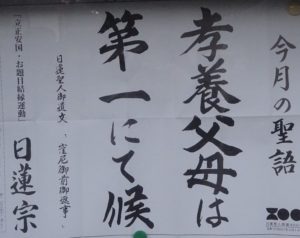 今月の聖語
孝養父母は
第一にて候
日蓮聖人御遺文 、 窪尼御前御返事 、
『立正安国・お題目結縁運動』
日蓮宗